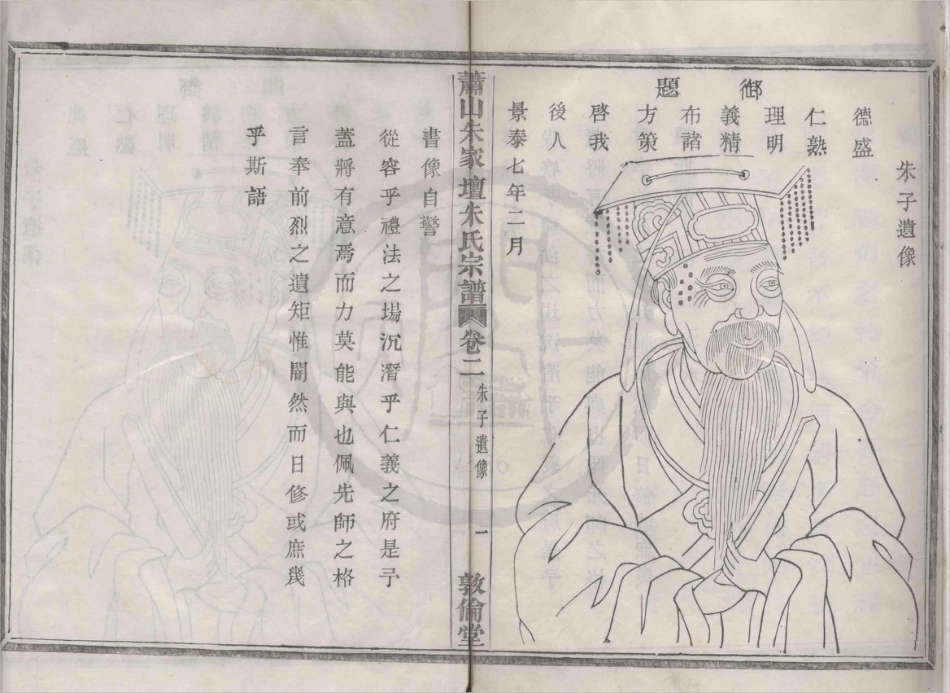 朱子遺像
御題
德盛
仁熟
理明
義精
布諸
方策
啓我
後人
景泰七年二月
蕭山朱家壇朱氏宗譜
卷二
朱子遺像
一
敦倫堂
書像自警
從容乎禮法之場沉潛乎仁義之府是予
蓋將有意焉而力莫能與也佩先師之格
言奉前烈之遺矩惟闇然而日修或庶幾
乎斯語